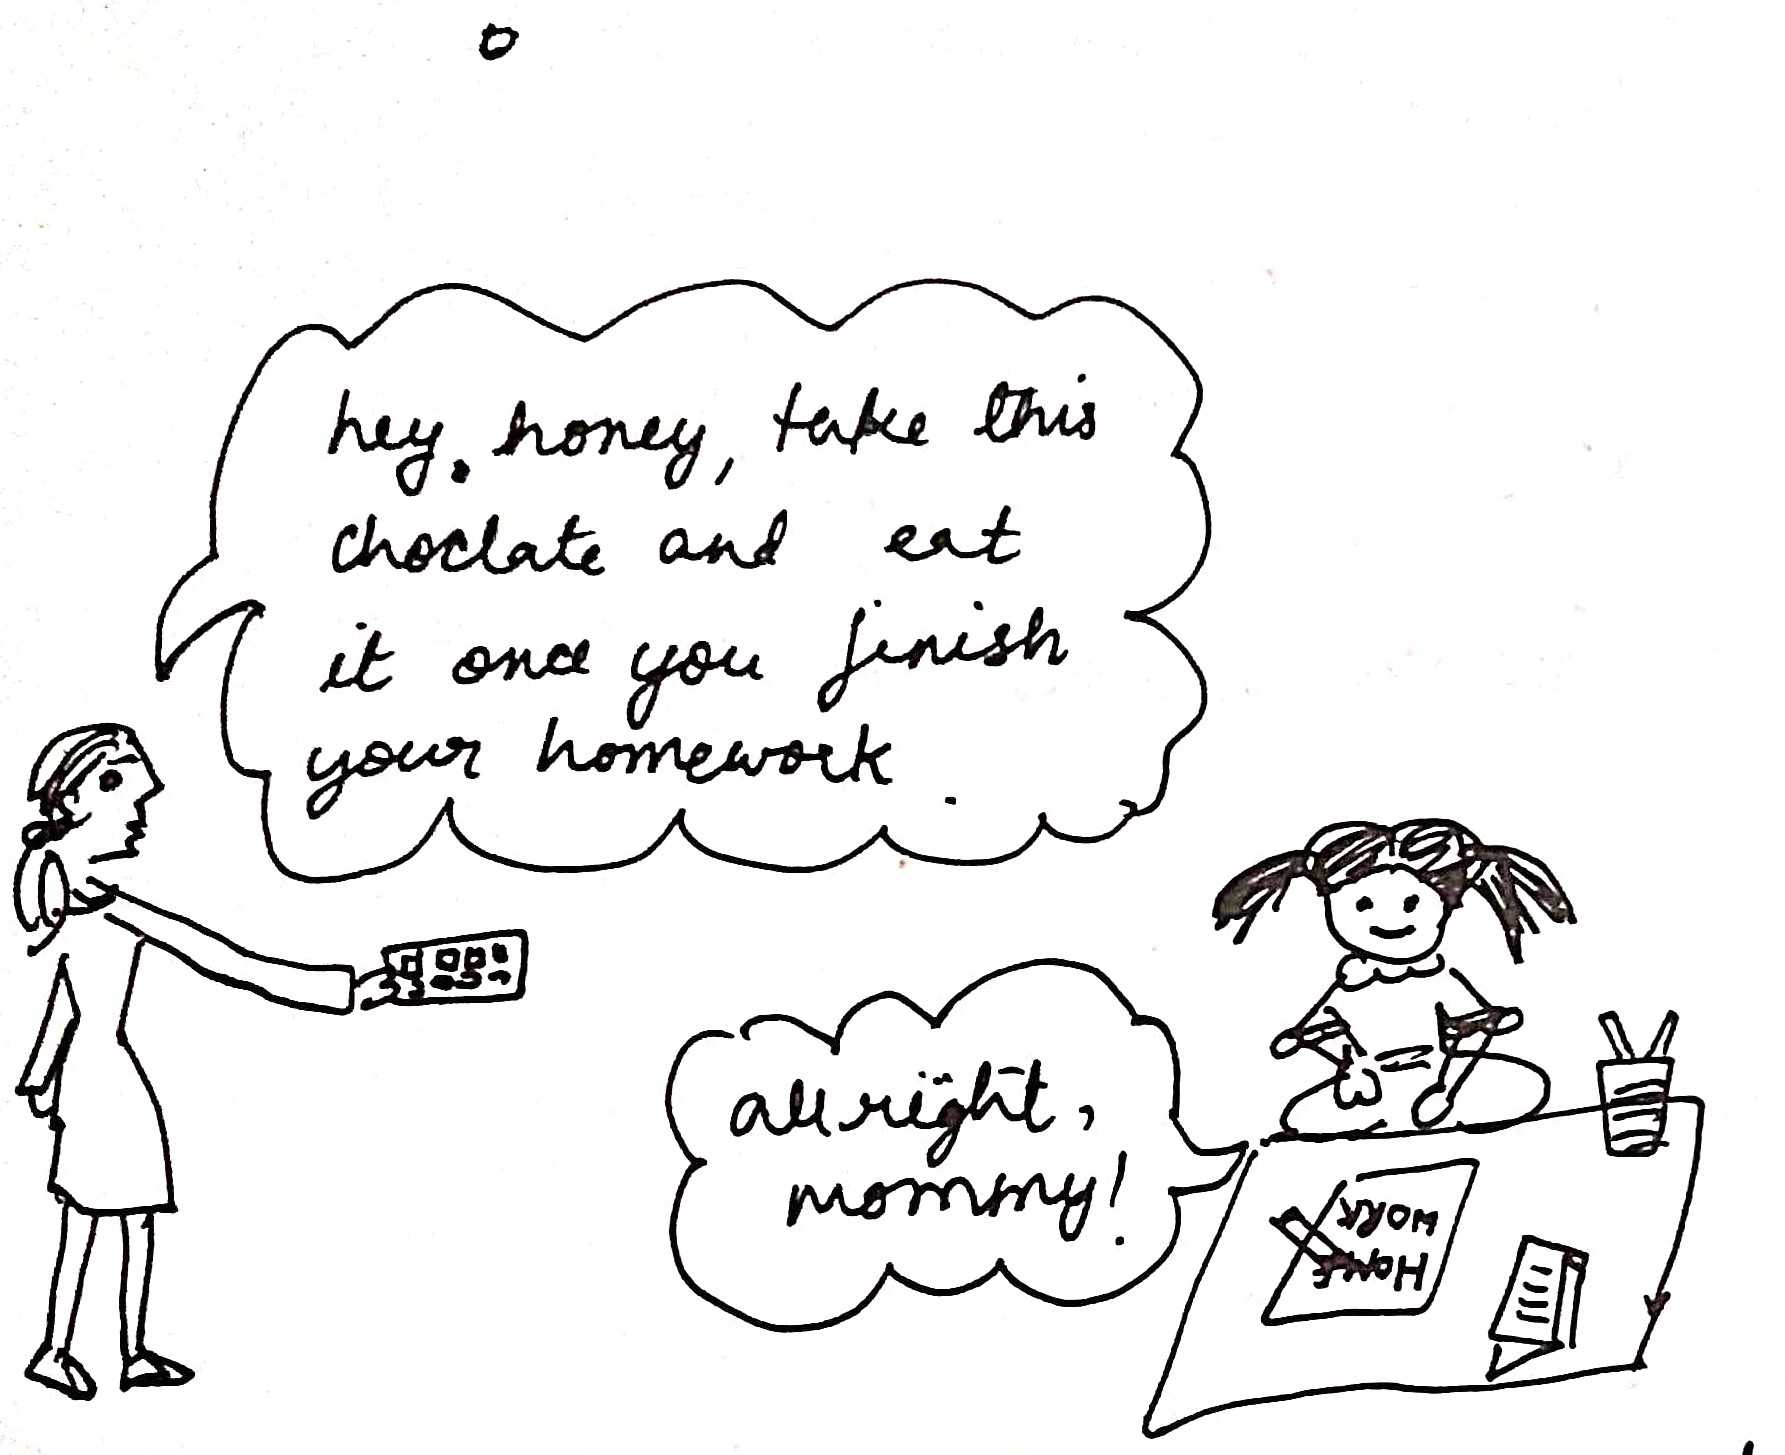 hey, honey, take this
choclate and eat
it once you finish
your homework.
all right,
mommy!
HOME
WORK